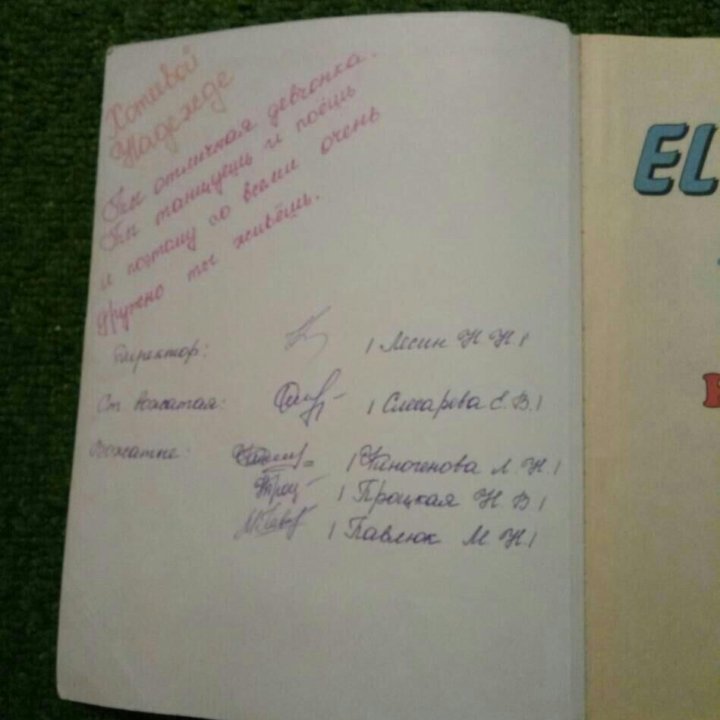 Хотевой
Надежде
Ты отличная девчонка.
Ты танцуешь и поёшь
и поэтому со всеми очень
дружно ты живёшь.
Директор: / Лесин Н Н /
Ст вожатая: / Слесарева Е. В. /
Вожатые: / Финогенова Л. Н. /
/ Процкая Н. В /
/ Павлюк М Н. /
EL